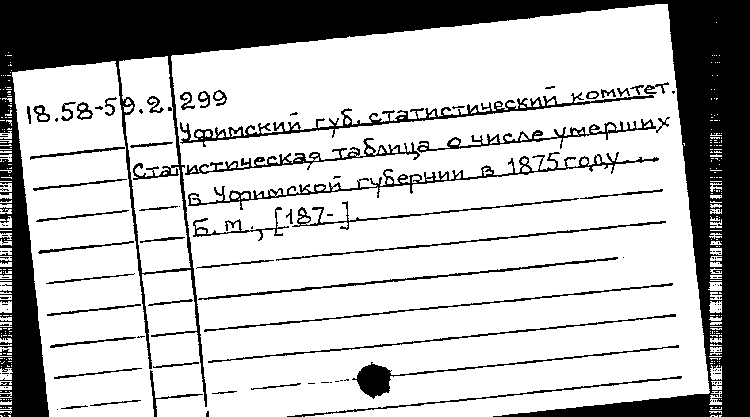 18.58-59.2.299
Уфимский губ. статистический комитет.
Статистическая таблица о числе умерших
в Уфимской губернии в 1875 году...
Б.м., [187-].